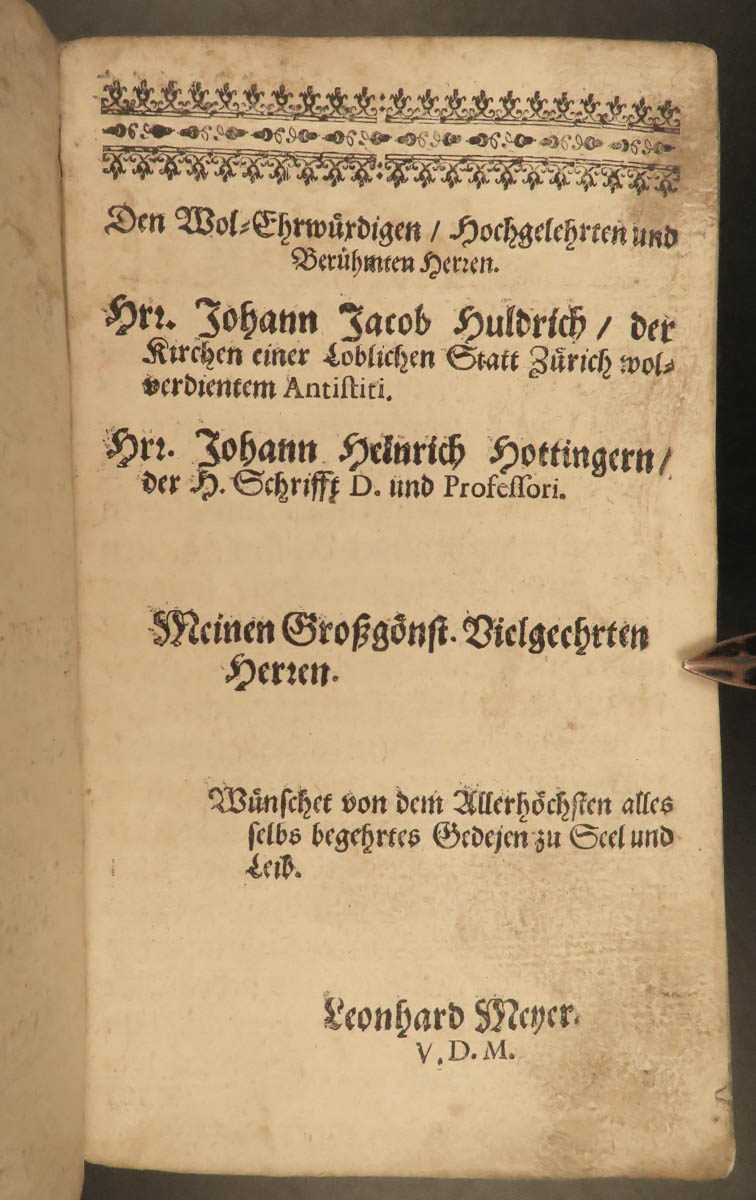 Den Wol-Ehrwürdigen / Hochgelehrten und
Berühmten Herren.
Hrr. Johann Jacob Huldrich / der
Kirchen einer Loblichen Statt Zürich wol-
verdientem Antistiti.
Hrr. Johann Heinrich Hottingern /
der H. Schrifft D. und Professori.
Meinen Großgönst. Vielgeehrten
Herren.
Wünschet von dem Allerhöchsten alles
selbs begehrtes Gedejen zu Seel und
Leib.
Leonhard Meyer.
V. D. M.